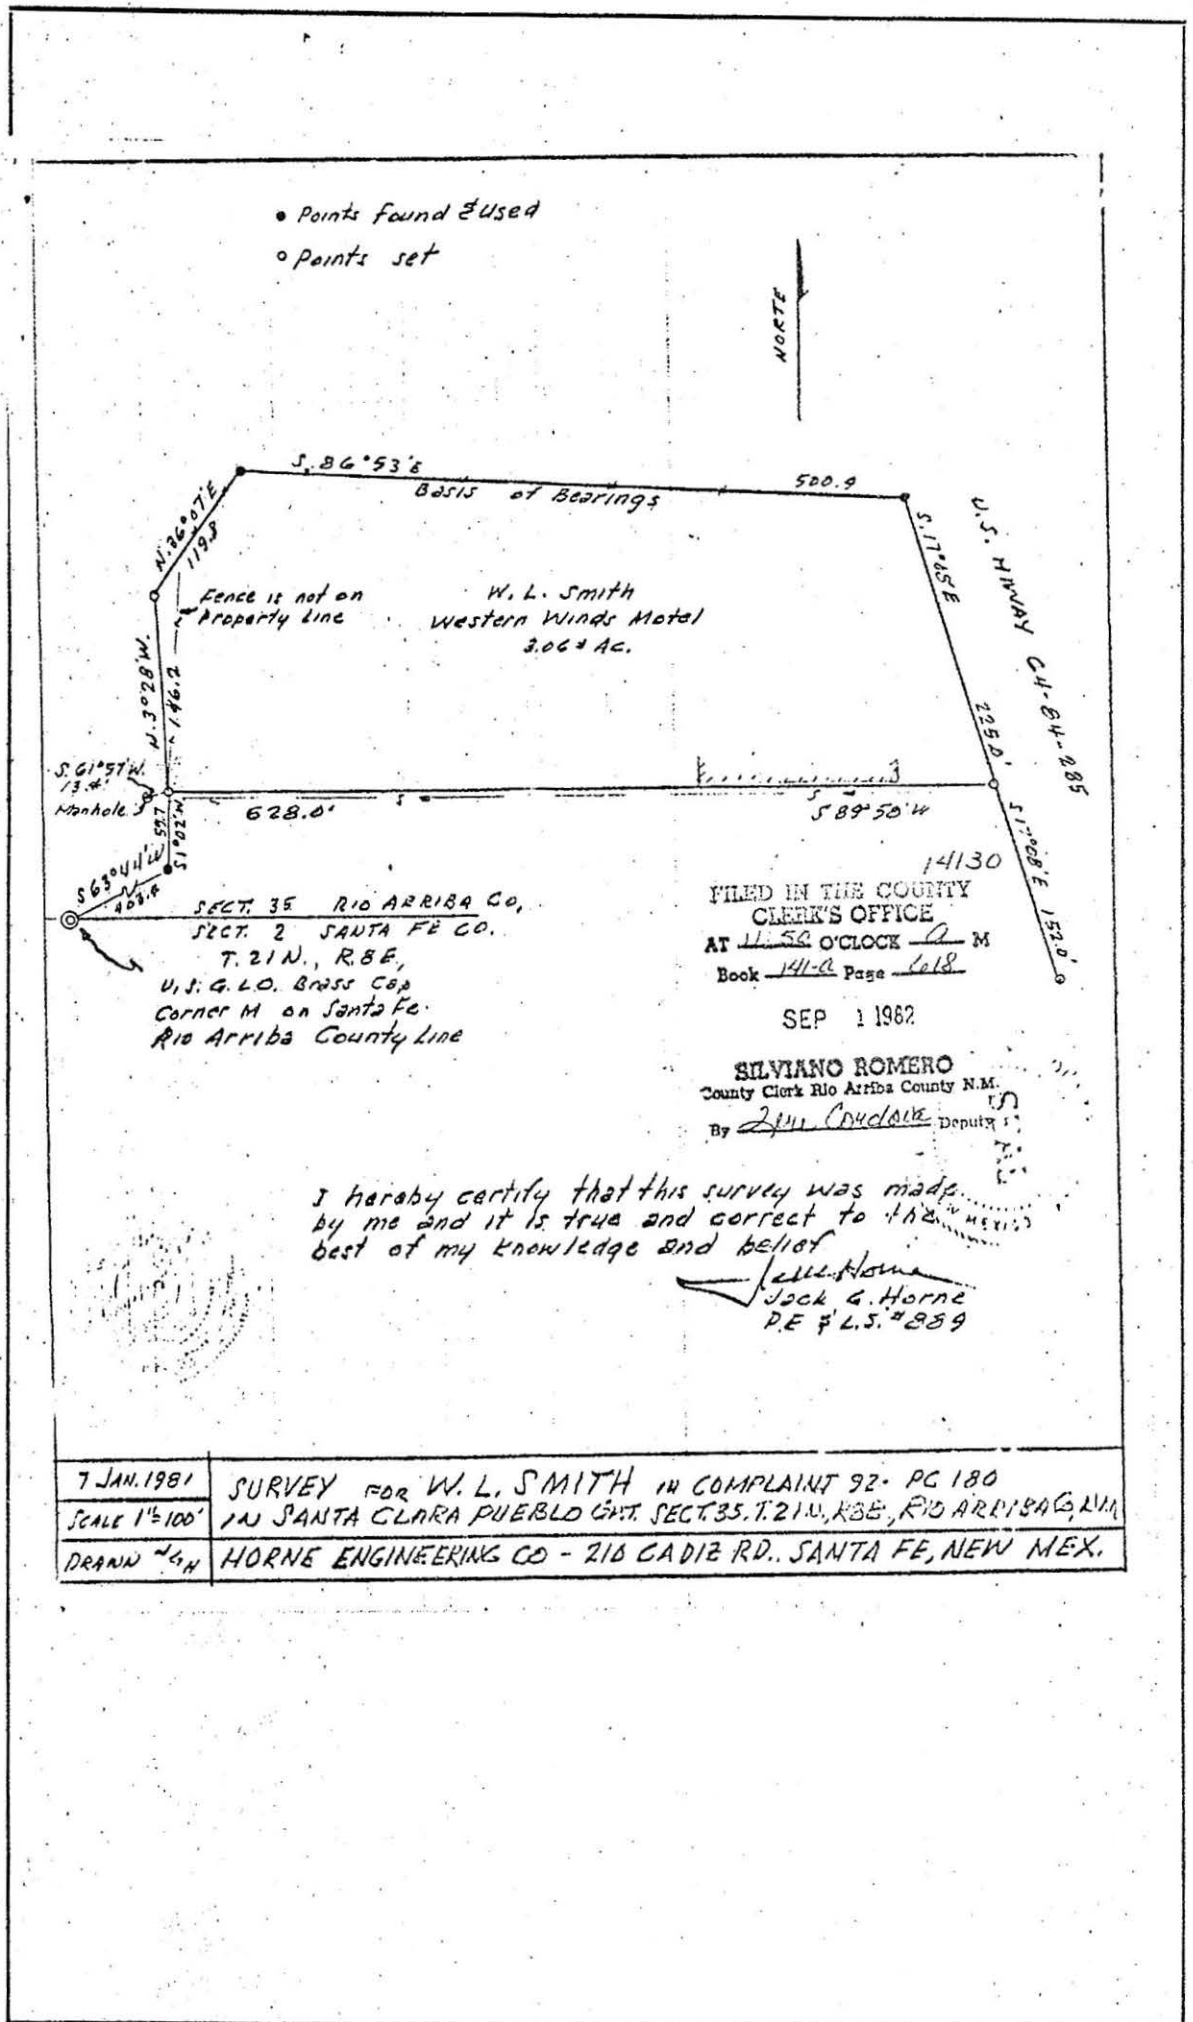 • Points found & Used
○ Points set
NORTE
S. 86°53'E
500.9
Basis of Bearings
N. 36°07'E
119.8
S. 17°05'E
225.0'
U.S. HIWAY 64-84-285
Fence is not on
Property Line
W. L. Smith
Western Winds Motel
3.06± Ac.
N. 3°28'W.
146.2
S. 61°57'W.
13.4'
Manhole
S
628.0'
S
S
S 89°50'W
59.7
S 1°02'W
S 63°44'W
403.4
S 17°08'E 152.0'
SECT. 35 RIO ARRIBA CO,
SECT. 2 SANTA FE CO.
T. 21 N., R. 8 E,
U.S. G. L.O. Brass Cap
Corner M on Santa Fe-
Rio Arriba County Line
14130
FILED IN THE COUNTY
CLERK'S OFFICE
AT 11:50 O'CLOCK A M
Book 141-A Page 618
SEP 1 1982
SILVIANO ROMERO
County Clerk Rio Arriba County N.M.
By Deputy
I hereby certify that this survey was made
by me and it is true and correct to the
best of my knowledge and belief
MEXICO
Jack G. Horne
P.E & L.S. #889
7 JAN. 1981
SURVEY FOR W. L. SMITH IN COMPLAINT 92- PC 180
SCALE 1"=100'
IN SANTA CLARA PUEBLO GNT. SECT. 35. T. 21 N., R8E, RIO ARRIBA CO, N.M.
DRAWN JGH
HORNE ENGINEERING CO - 210 CADIZ RD.. SANTA FE, NEW MEX.